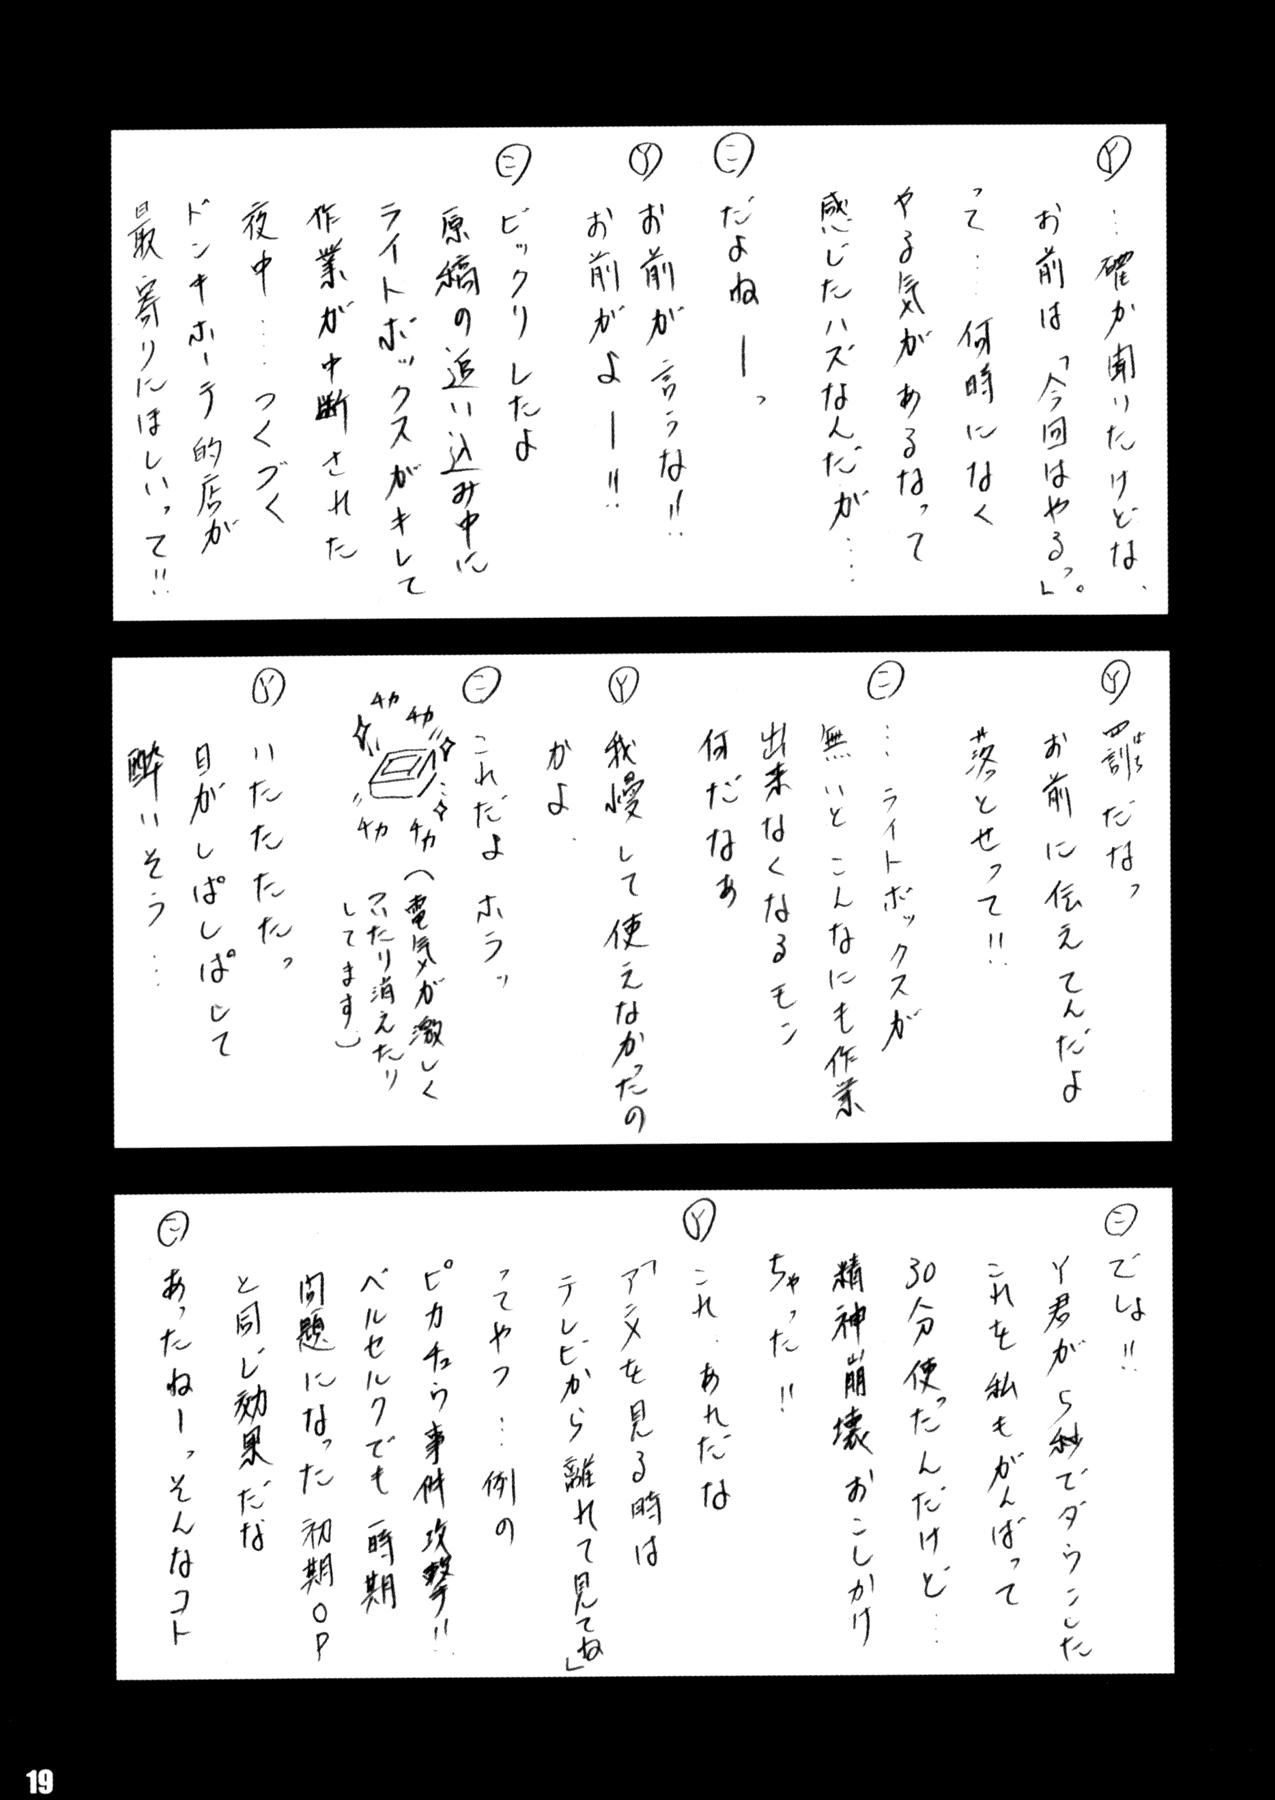 Ⓨ…確か聞いたけどな、
お前は「今回はやるっ。」
って……何時になく
やる気があるなって
感じたハズなんだが……
㊁だよねーっ
Ⓨお前が言うな!!
お前がよー!!
㊁ビックリしたよ
原稿の追い込み中に
ライトボックスがキレて
作業が中断された
夜中……つくづく
ドンキホーテ的店が
最寄りにほしいって!!
Ⓨ罰だなっ
ばち
お前に伝えてんだよ
落とせって!!
㊁…ライトボックスが
無いとこんなにも作業
出来なくなるモン
何だなぁ
Ⓨ我慢して使えなかったの
かよ.
㊁これだよ ホラッ
チカ
チカ
チカ
チカ
(電気が激しく
ついたり消えたり
してます)
Ⓨいたたたたっ
目がしぱしぱして
酔いそう…
㊁でしょ!!
Y君が5秒でダウンした
これを私もがんばって
30分使ったんだけど…
精神崩壊おこしかけ
ちゃった!!
Ⓨこれ、あれだな
「アニメを見る時は
テレビから離れて見てね」
ってやつ…例の
ピカチュウ事件攻撃!!
ベルセルクでも一時期
問題になった初期OP
と同じ効果だな
㊁あったねーっそんなコト
19